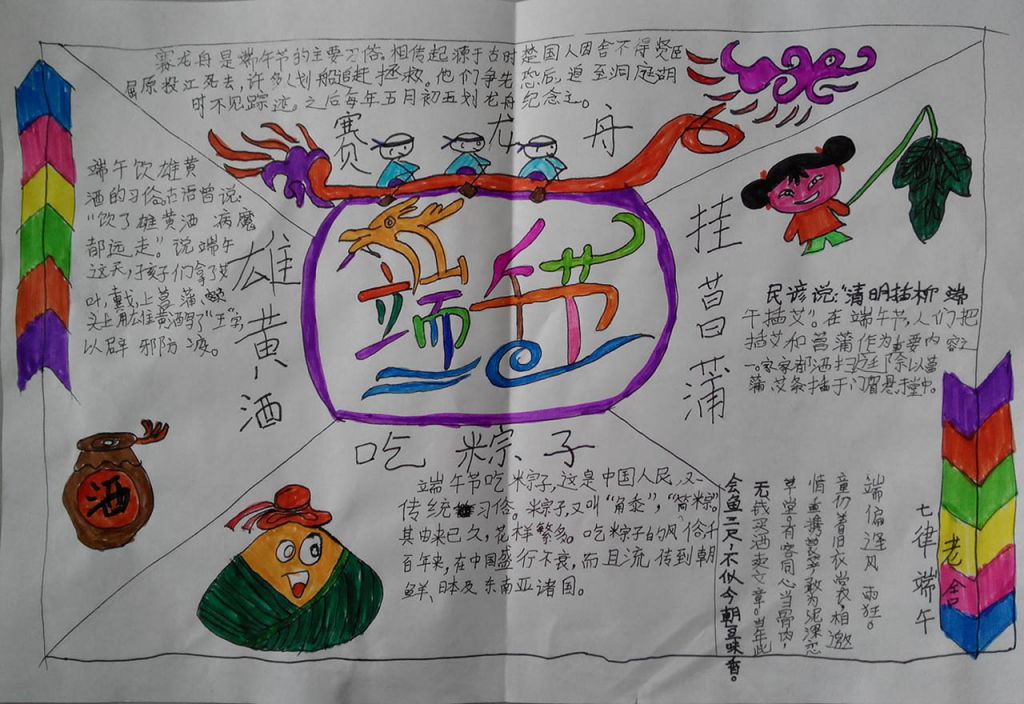 赛龙舟是端午节的主要习俗。相传起源于古时楚国人因舍不得贤臣
屈原投江死去,许多人划船追赶拯救。他们争先恐后,追至洞庭湖
时不见踪迹。之后每年五月初五划龙舟纪念之。
赛龙舟
端午饮雄黄
酒的习俗古语曾说:
“饮了雄黄酒 病魔
都远走”。说端午
这天,孩子们拿了艾
叶,戴上菖蒲
头上用雄黄酒写了“王”字
以辟邪防疫。
雄黄酒
端午节
挂菖蒲
民谚说:“清明插柳 端
午插艾”。在端午节,人们把
插艾和菖蒲作为重要内容之
一。家家都洒扫庭除以菖
蒲、艾条插于门眉悬于堂中。
酒
吃粽子
端午节吃粽子,这是中国人民又一
传统习俗。粽子,又叫“角黍”,“筒粽”
其由来已久,花样繁多。吃粽子的风俗,千
百年来,在中国盛行不衰,而且流传到朝
鲜、日本及东南亚诸国。
七律端午
老舍
端偏逢风雨狂。
童仍着旧衣裳,相邀
情重携蓑笠,敢为泥深恋
草堂。有客同心当骨肉,
无钱买酒卖文章。当年此
会鱼三尺,不似今朝豆味香。